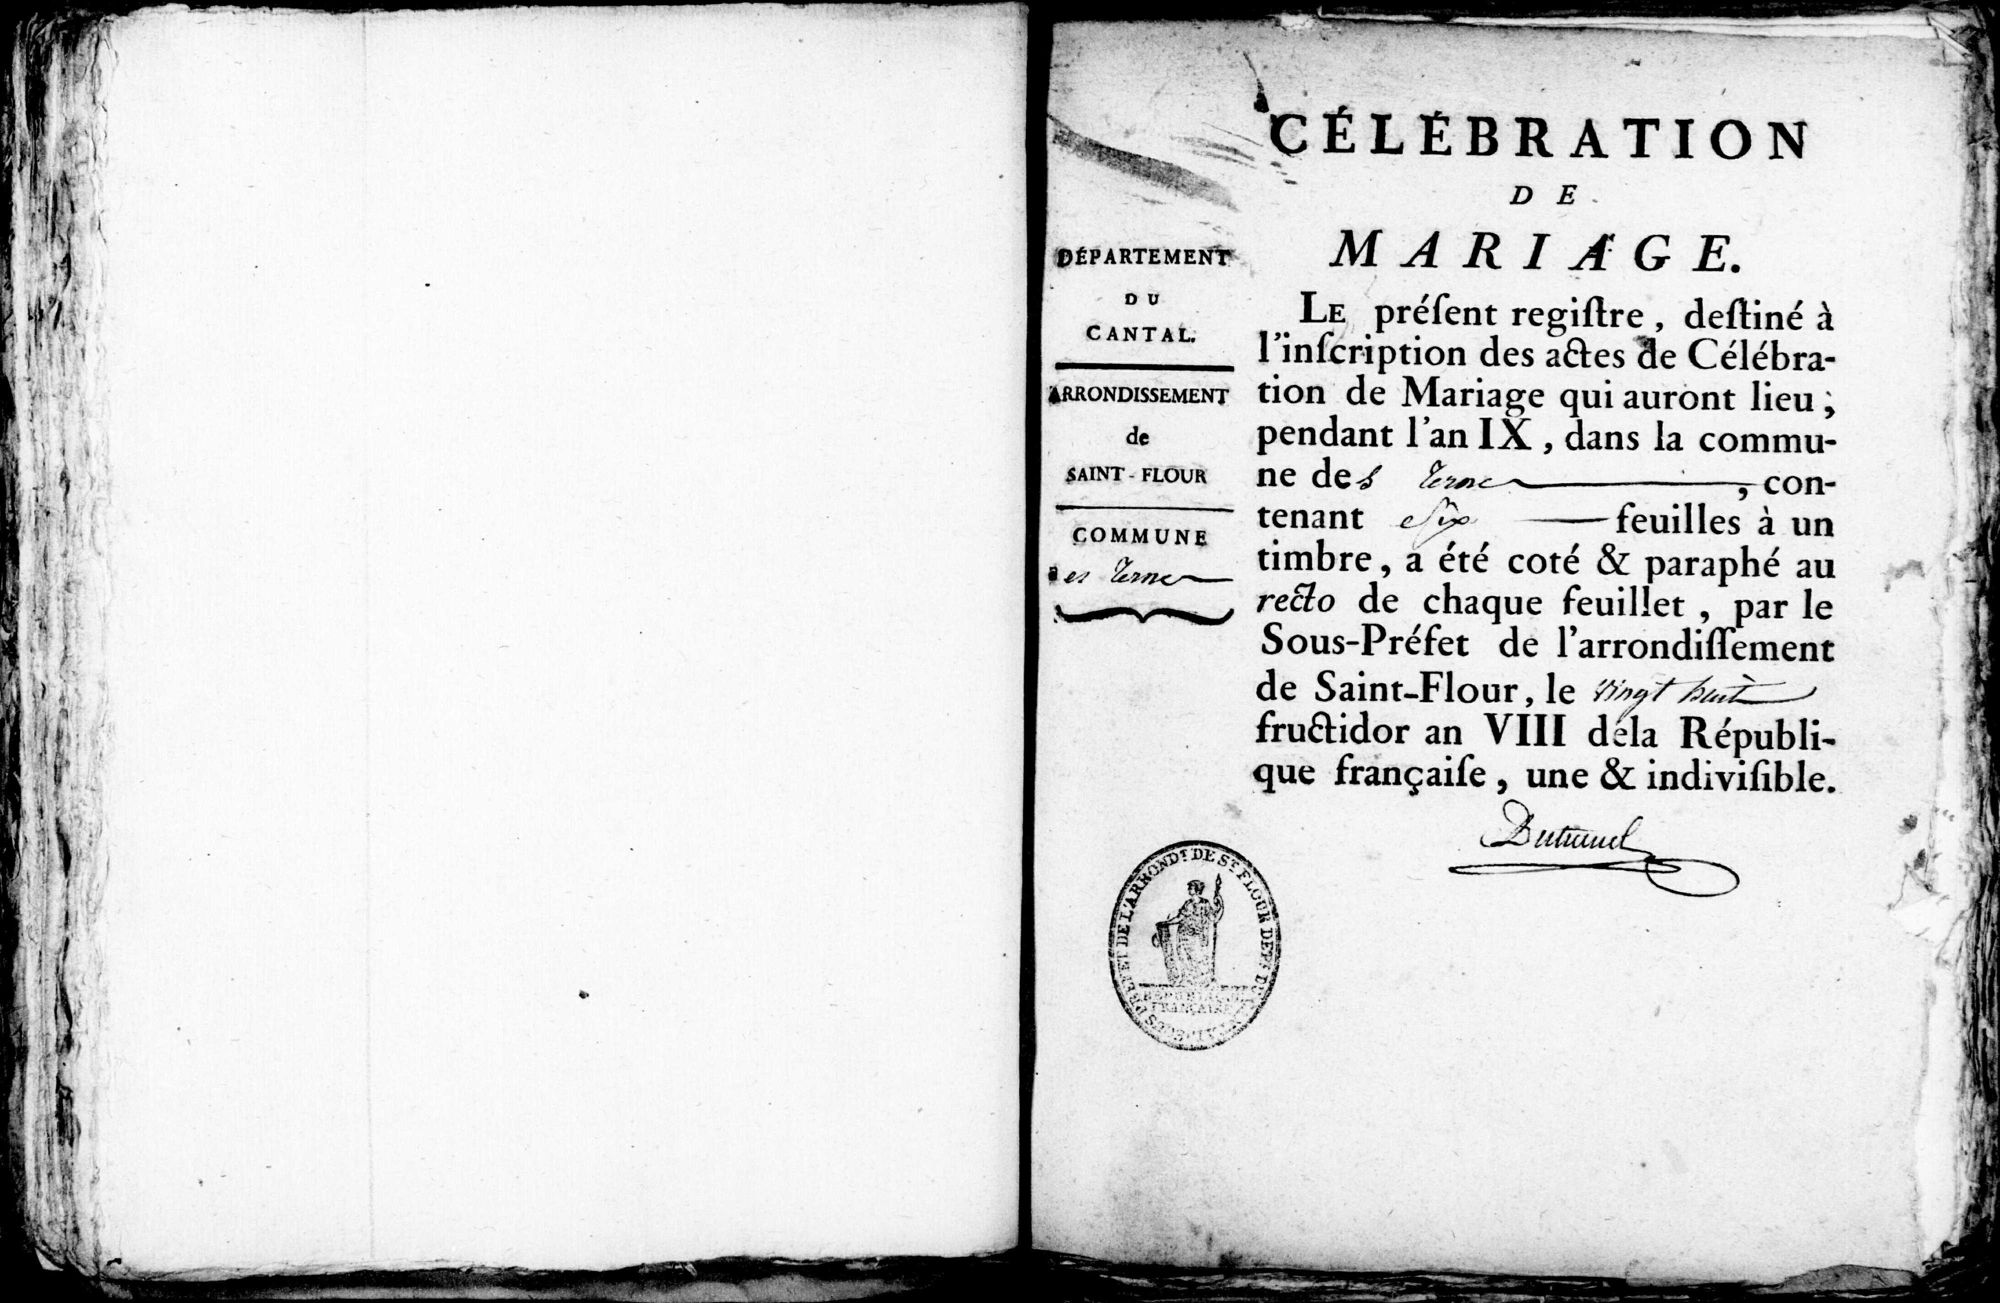 CÉLÉBRATION
DE
MARIAGE.
DÉPARTEMENT
DU
CANTAL.
ARRONDISSEMENT
de
SAINT-FLOUR
COMMUNE
des ternes
LE préſent regiſtre, deſtiné à
l'inſcription des actes de Célébra-
tion de Mariage qui auront lieu,
pendant l'an IX, dans la commu-
ne des ternes, con-
tenant six feuilles à un
timbre, a été coté & paraphé au
recto de chaque feuillet, par le
Sous-Préfet de l'arrondiſſement
de Saint-Flour, le vingt huit
fructidor an VIII dela Républi-
que françaiſe, une & indiviſible.
SOUS PREFET DE L'ARRONDT. DE ST. FLOUR DEPT. DU CANTAL
REPUBLIQUE
FRANÇAISE